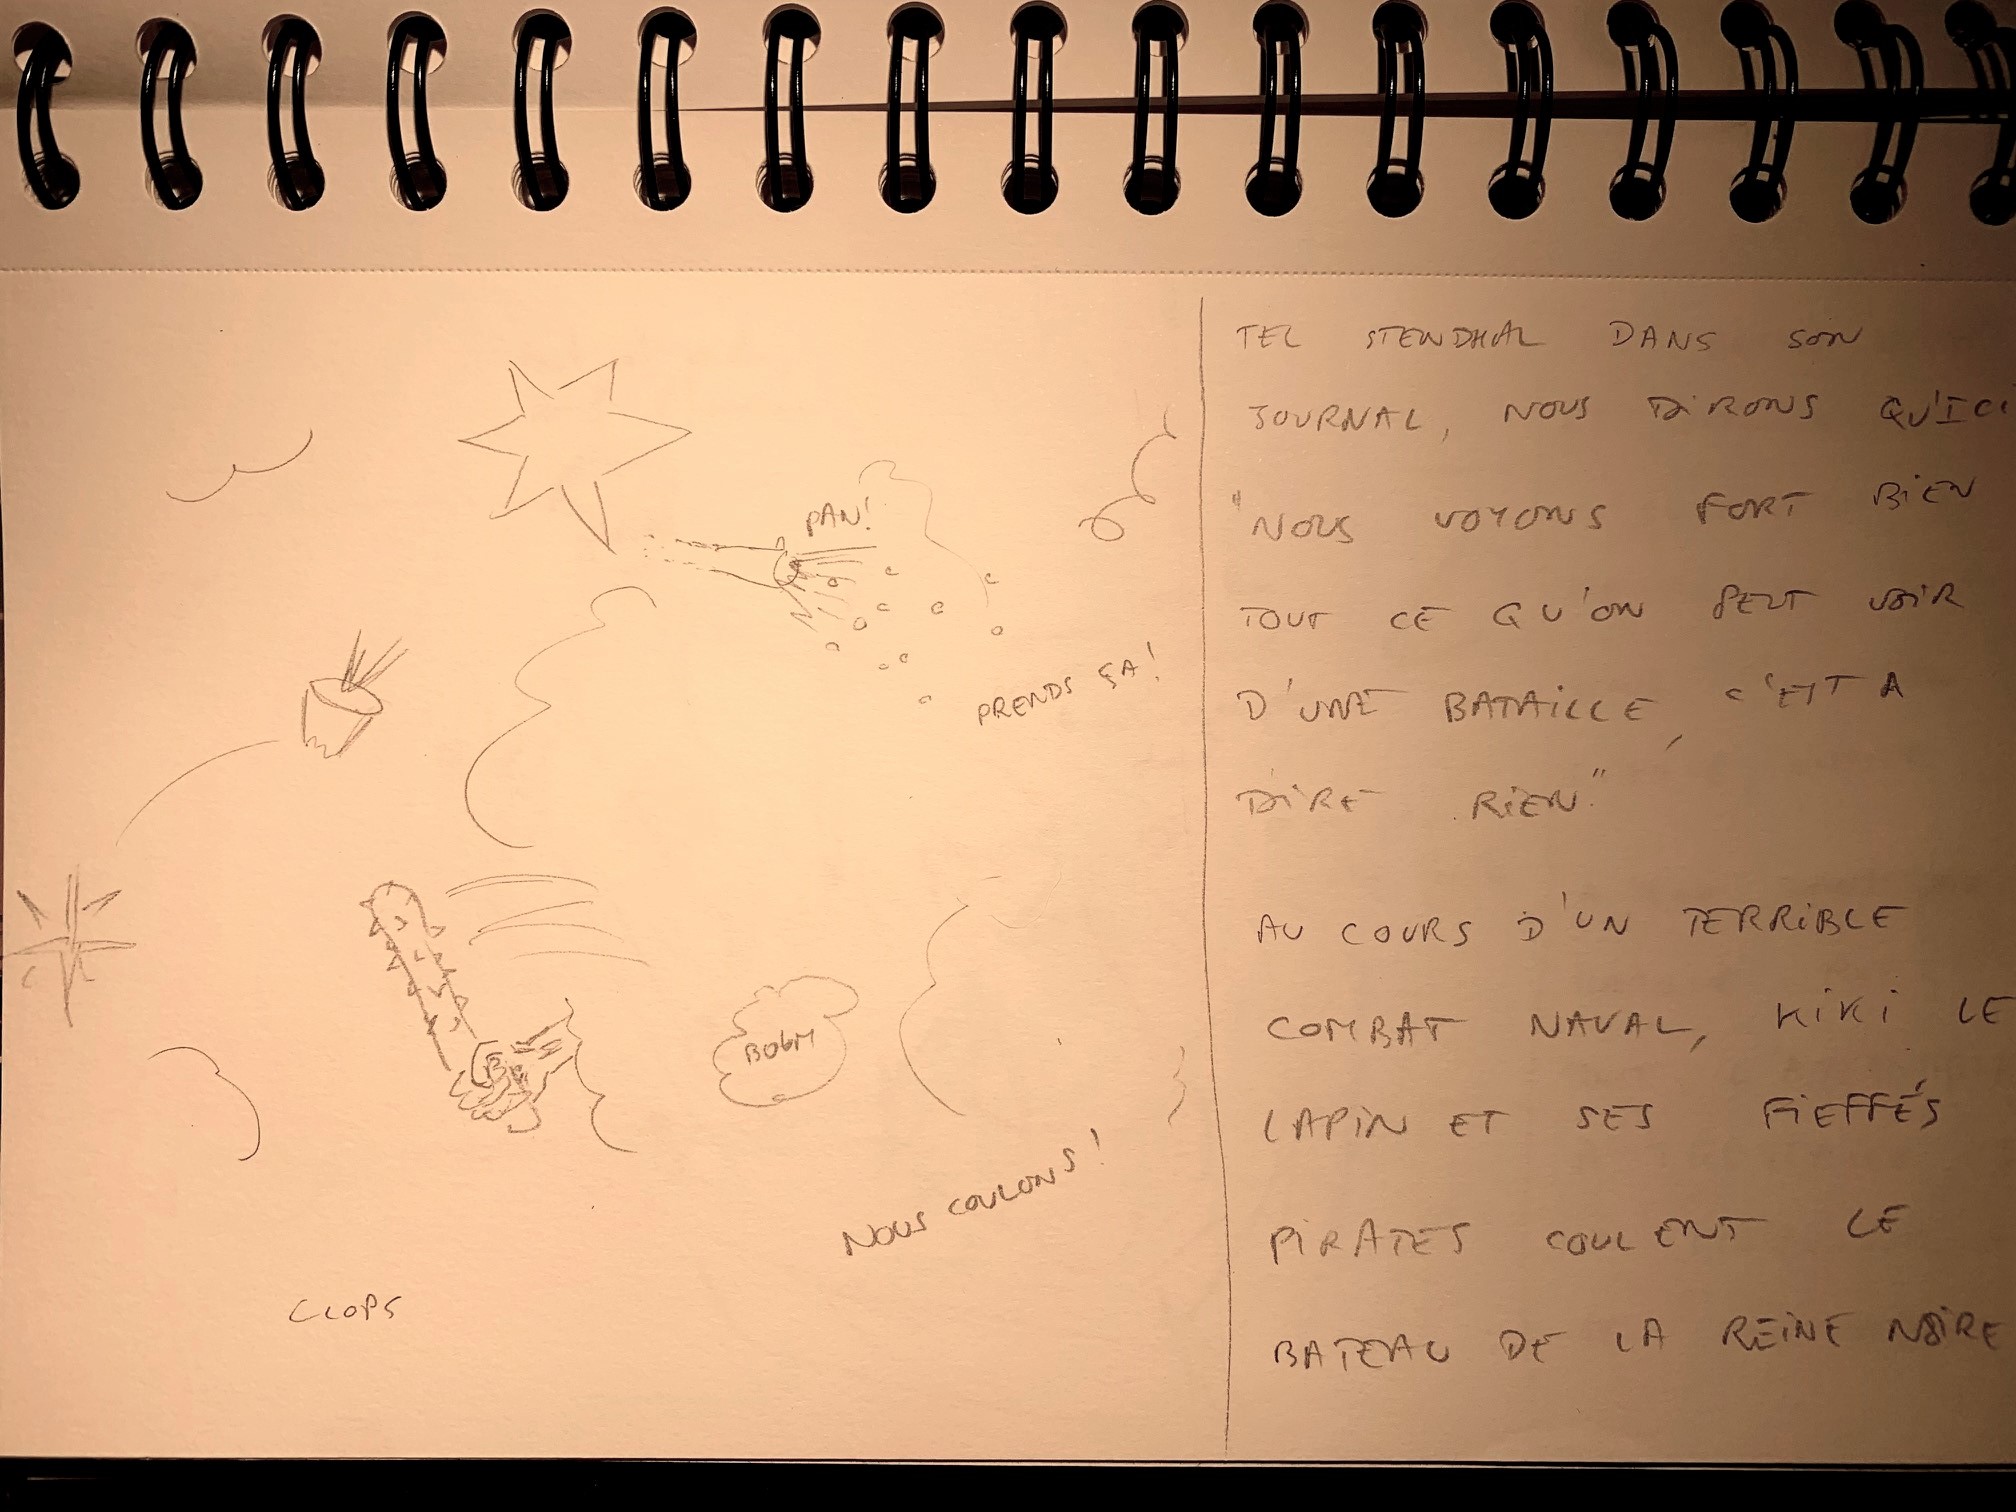 PAN!
PRENDS ÇA!
BOUM
NOUS COULONS!
CLOPS
TEL STENDHAL DANS SON
JOURNAL, NOUS DIRONS QU'ICI
"NOUS VOYONS FORT BIEN
TOUT CE QU'ON PEUT VOIR
D'UNE BATAILLE, C'EST A
DIRE RIEN."
AU COURS D'UN TERRIBLE
COMBAT NAVAL, KIKI LE
LAPIN ET SES FIEFFÉS
PIRATES COULENT LE
BATEAU DE LA REINE NOIRE